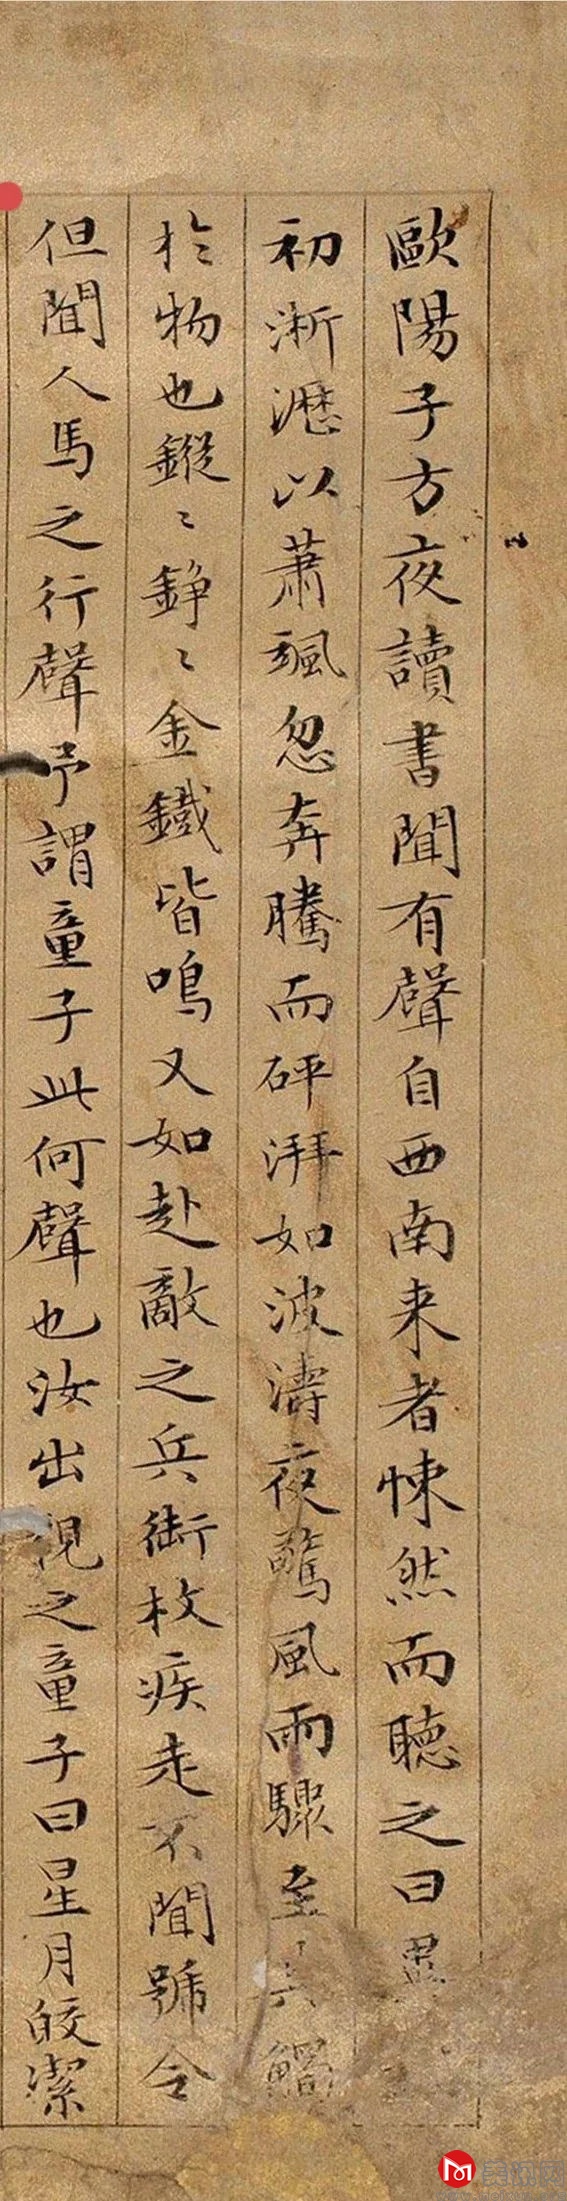 歐陽子方夜讀書聞有聲自西南来者悚然而聴之曰異
初淅瀝以蕭颯忽奔騰而砰湃如波濤夜驚風雨驟至其觸
於物也鏦〻錚〻金鐵皆鳴又如赴敵之兵銜枚疾走不聞號令
但聞人馬之行聲予謂童子此何聲也汝出視之童子曰星月皎潔